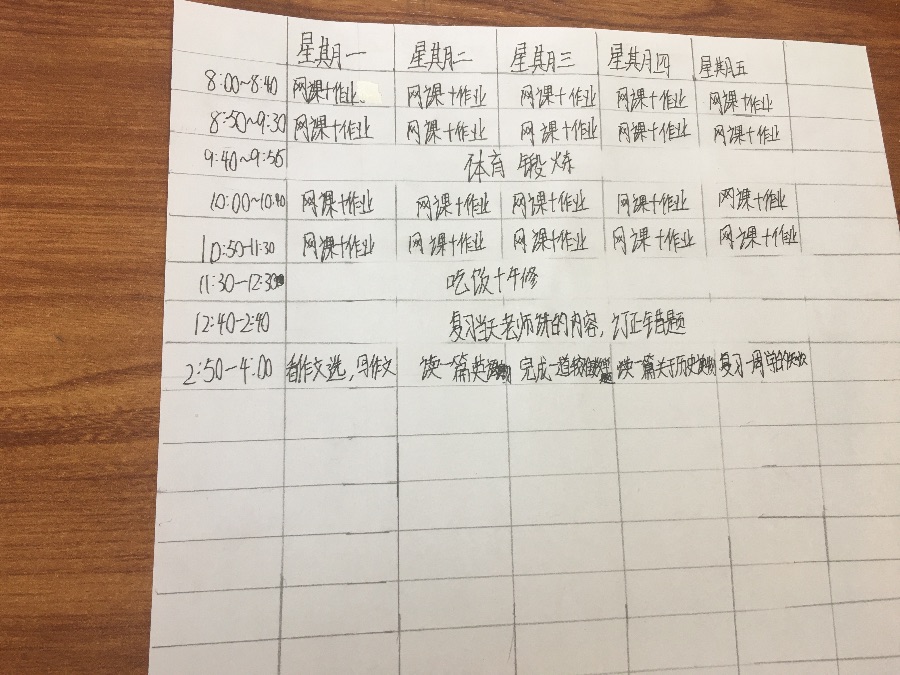 星期一 星期二 星期三 星期四 星期五
8:00~8:40 网课+作业 网课+作业 网课+作业 网课+作业 网课+作业
8:50~9:30 网课+作业 网课+作业 网课+作业 网课+作业 网课+作业
9:40~9:55 体育锻炼
10:00~10:40 网课+作业 网课+作业 网课+作业 网课+作业 网课+作业
10:50-11:30 网课+作业 网课+作业 网课+作业 网课+作业 网课+作业
11:30-12:30 吃饭+午休
12:40-2:40 复习当天老师讲的内容,订正错题
2:50-4:00 看作文选,写作文 读一篇英 完成一道 读一篇关于历史 复习一周